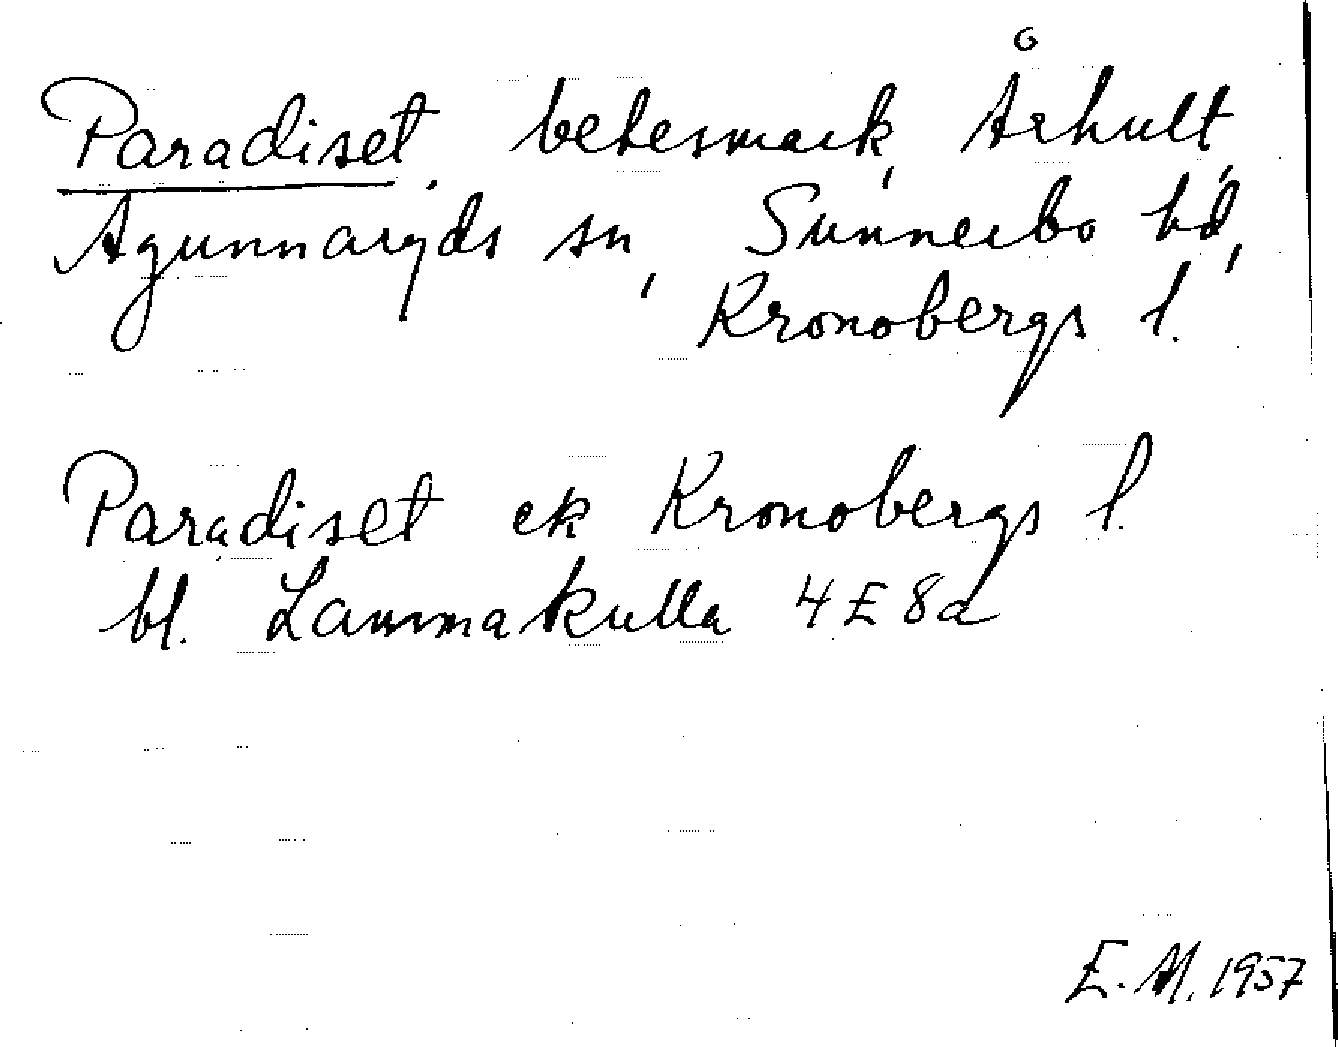 Paradiset, betesmark, Århult,
Agunnaryds sn, Sunnerbo hd,
Kronobergs l.
Paradiset ek Kronobergs l.
bl. Lammakulla 4E8a
E. M. 1957